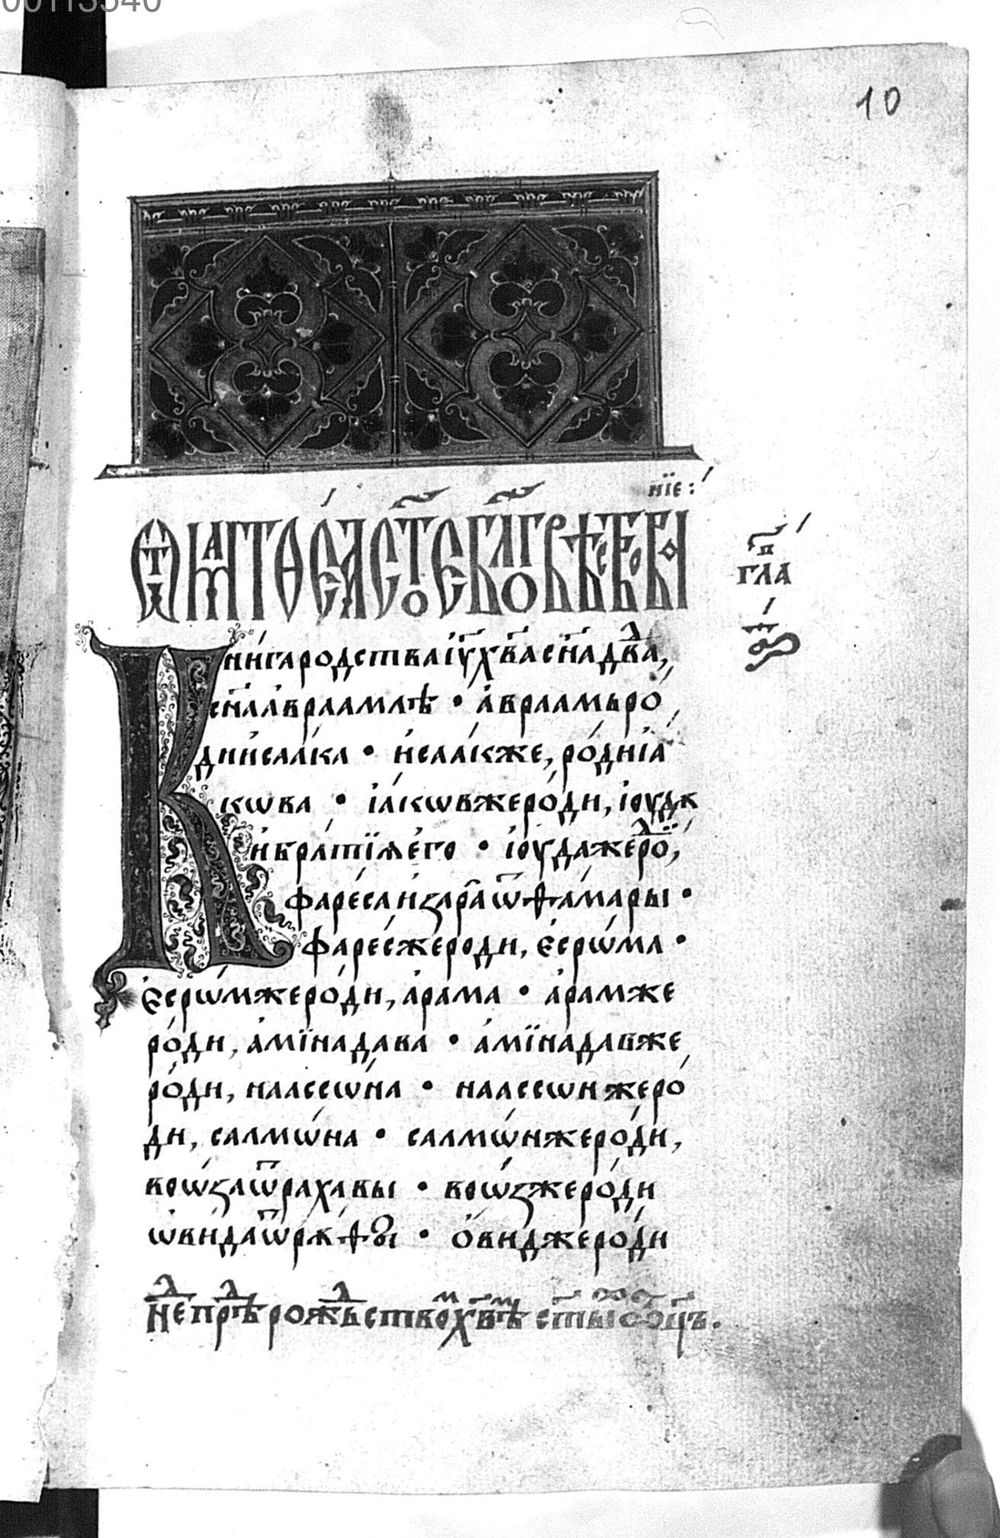 00113540
10
нїе:
Ѿ маттоеа стое блговѣствовані
гла
Книга родства іу҃ хв҃а сн҃а дв҃да,
сн҃а авраамлѣ · авраамь ро
ди исаака · исаак же, роди іа
кѡва · іакѡв же роди, іоудꙋ
и братїѧ его · іоуда же роⷣ,
фареса и зара ѿ ѳамары ·
фарес же роди, есрѡма ·
есрѡм же роди, арама · арам же
роди, амїнадава · амїнадав же
роди, наассѡна · наассѡн же ро
ди, салмѡна · салмѡн же роди,
воѡза ѿ рахавы · воѡз же роди
ѡвида ѿ рꙋѳы · овид же роди
нⷣе прѣⷣ рожⷣьствоⷨ хв҃ѣⷨ ст҃ыⷯ ѻц҃ъ.